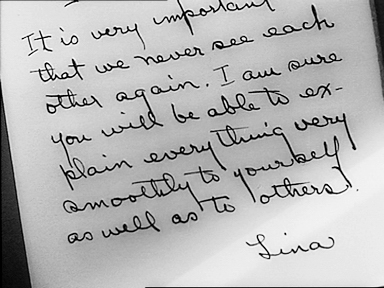 It is very important
that we never see each
other again. I am sure
you will be able to ex-
plain everything very
smoothly to yourself
as well as to others.
Lina